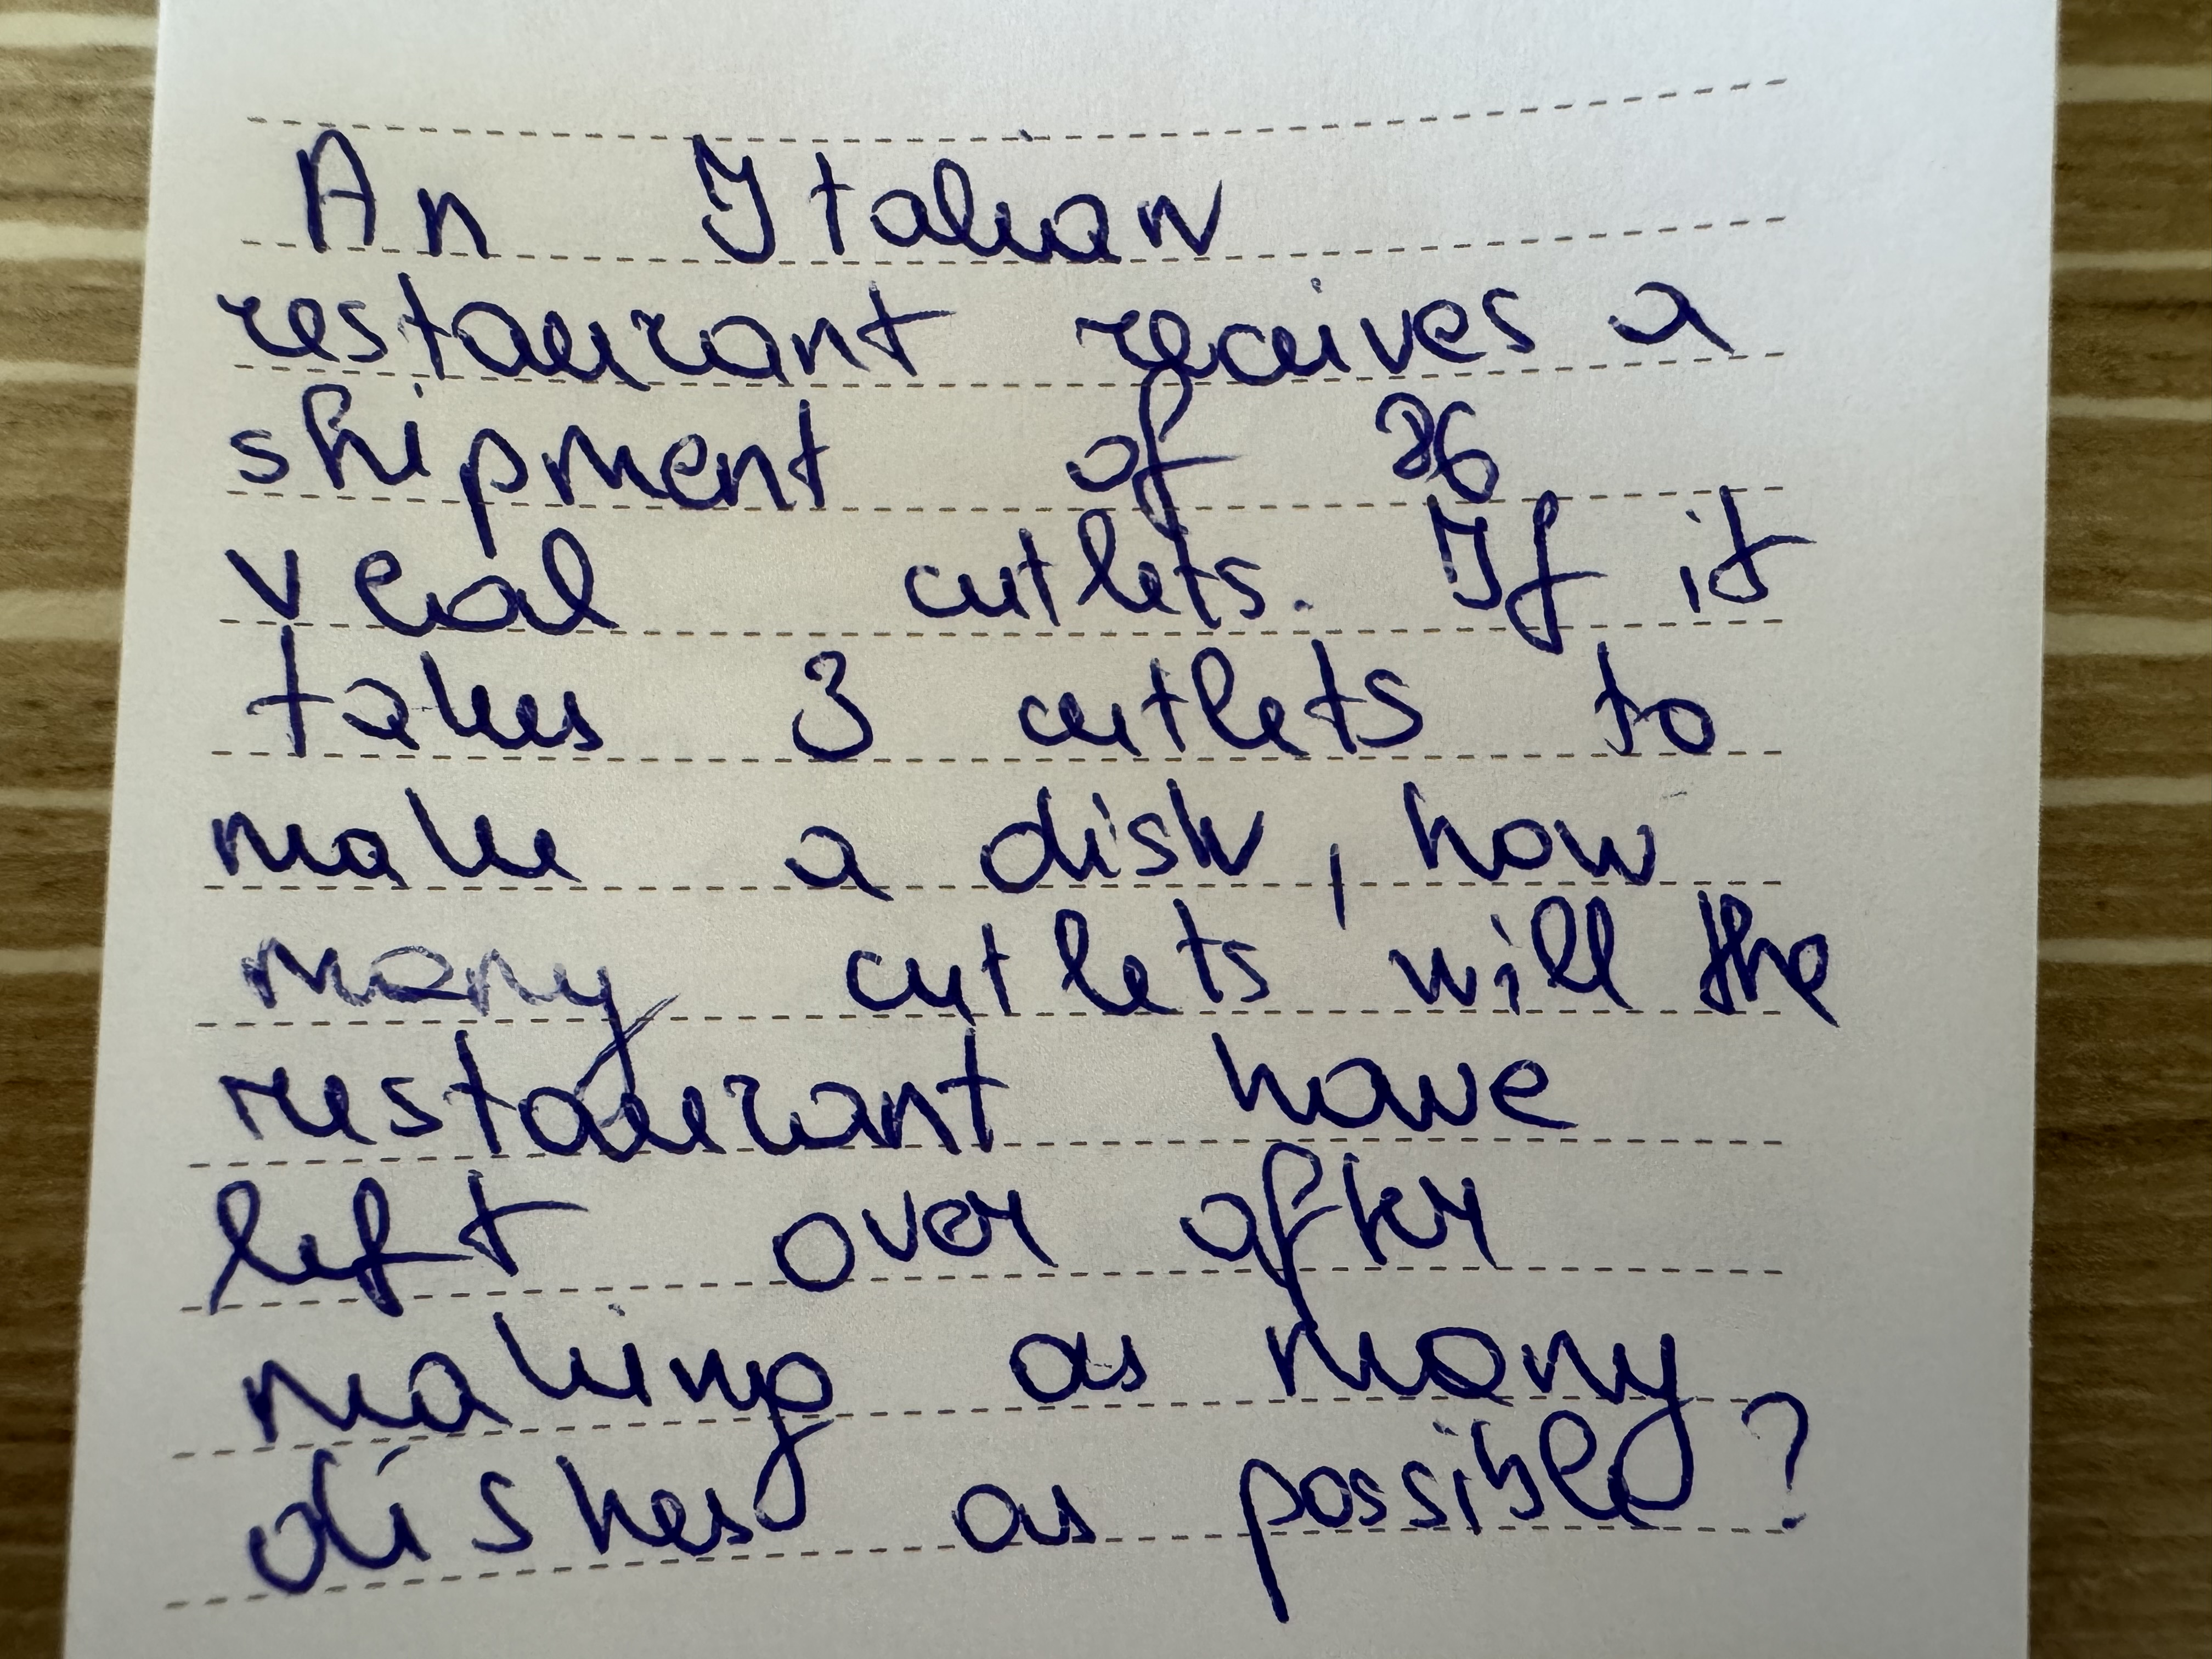 An Italian
restaurant receives a
shipment of 86
veal cutlets. If it
takes 3 cutlets to
make a dish, how
many cutlets will the
restaurant have
left over after
making as many
dishes as possible?